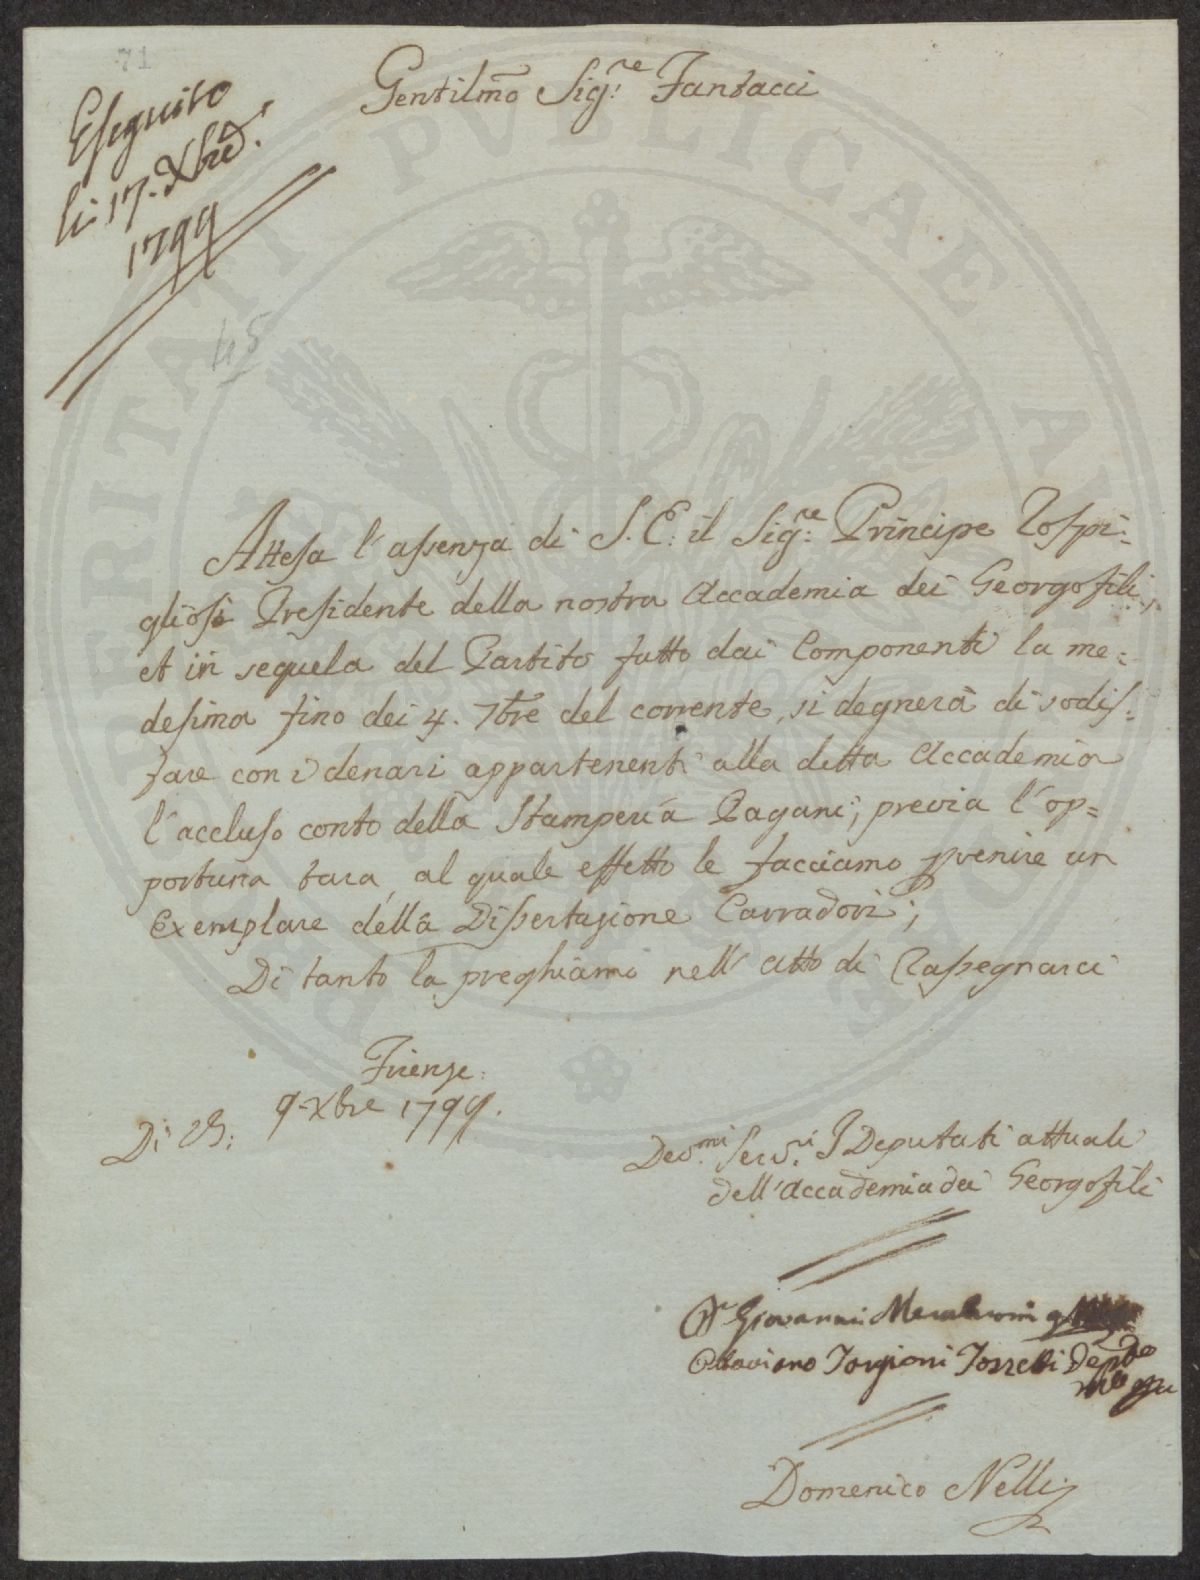 71
Eseguito
li 17. Xbre
1799
45
Gentilmõ Sig:re Fantacci
Attesa l'assenza di S. E: il Sig:re Principe Rospi:
gliosi Presidente della nostra Accademia dei Georgofili,
et in sequela del Partito fatto dai Componenti la me:
desima fino dei 4. 7bre del corrente, si degnerà di sodis:
fare con i denari appartenenti alla detta Accademia
l'accluso conto della Stamperia Pagani; previa l'op=
portuna tara, al quale effetto le facciamo pvenire un
Exemplare della Dissertazione Carradori;
Di tanto la preghiamo nell'atto di Rassegnarci
Firenze:
9. Xbre 1799.
Di VS:
Devmi: Servri: I Deputati attuali
dell'Accademia dei Georgofili
Dr Giovanni
Ottaviano Targioni Tozzetti
Domenico Nelli
PUBLICAE